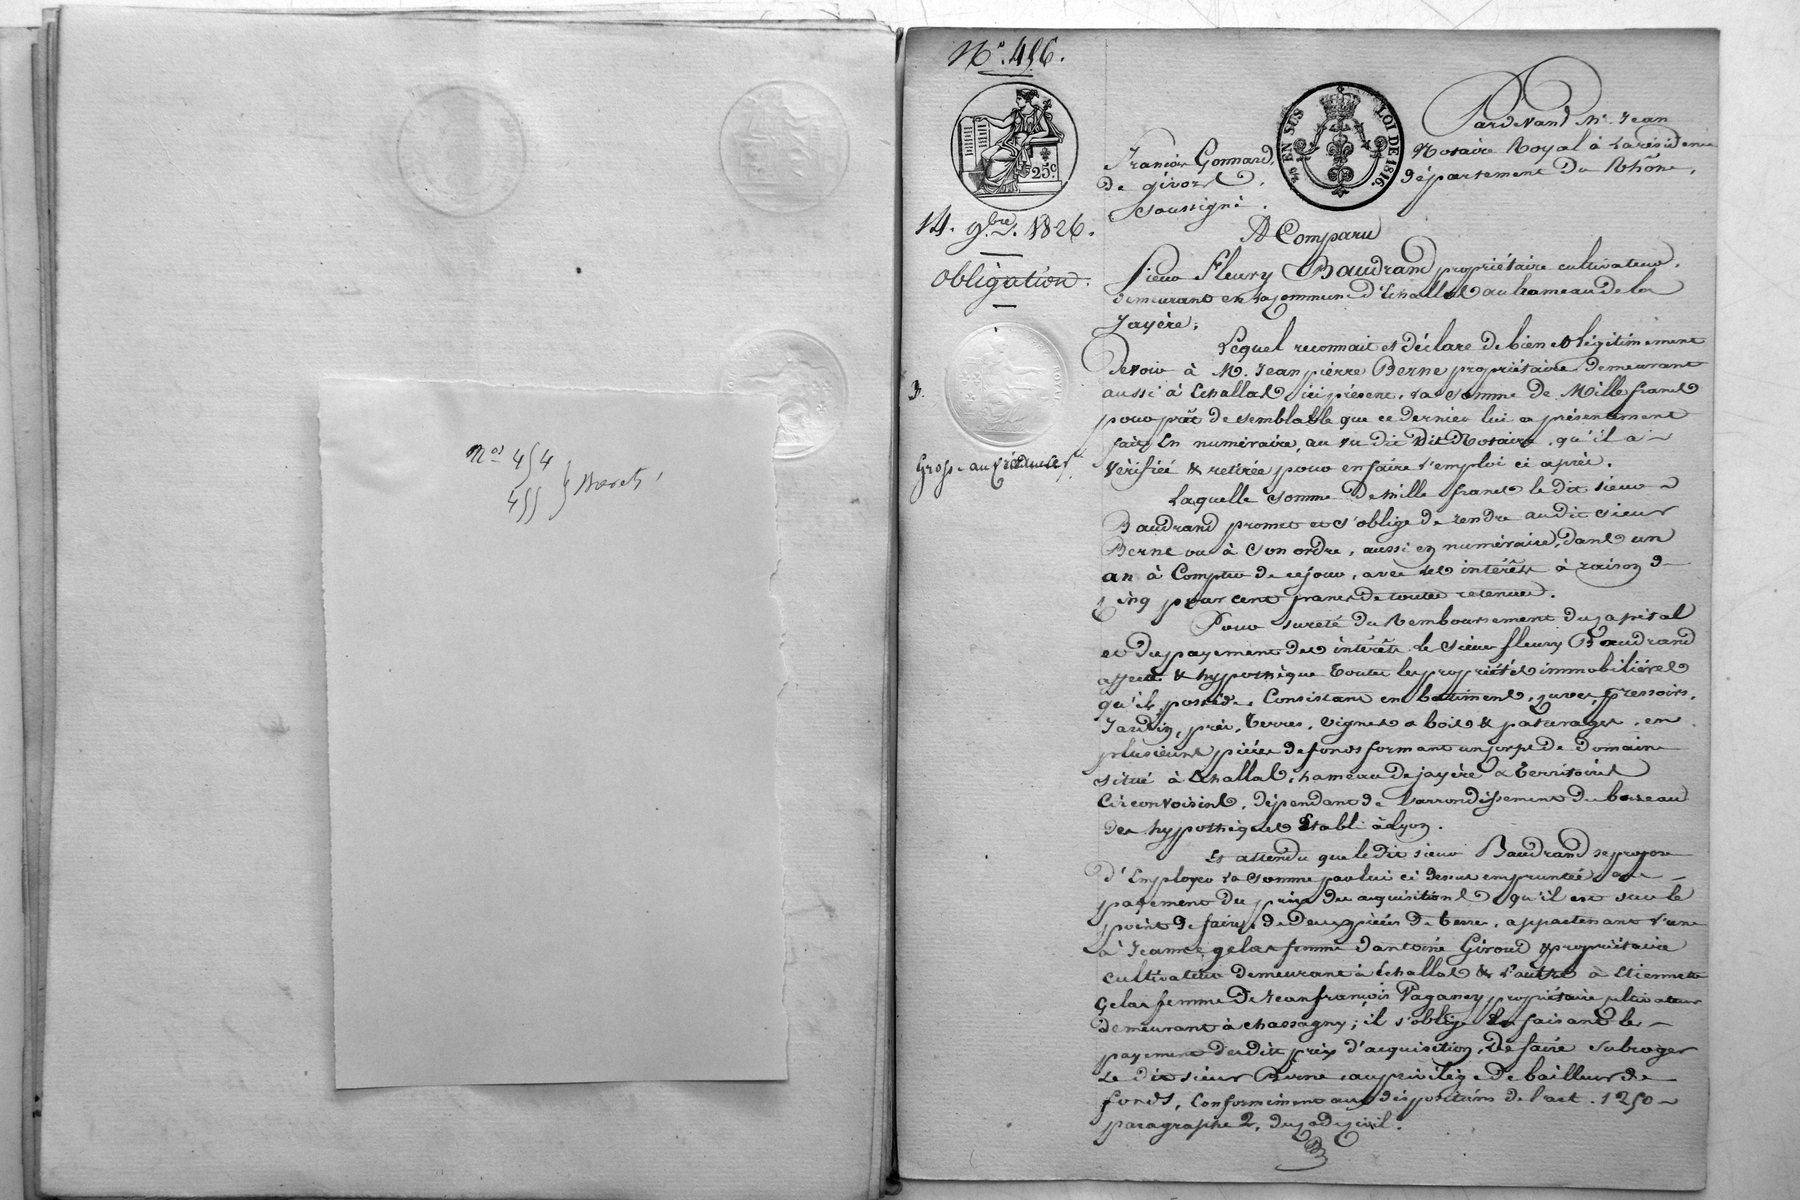 nos 454
455
No. 456.
25c.
EN SUS LOI DE 1816.
Pardevant Me. Jean
François Gonnard, Notaire Royal à la résidence
de givors, département du Rhône,
soussigné.
14. 9.bre. 1826.
A Comparu
obligation.
Sieur Fleury Baudrand propriétaire cultivateur,
demeurant en la commune d'Echallas au hameau de la
Jayère;
Lequel reconnait et déclare de bien et légitimement
devoir à M. Jean pierre Berne propriétaire demeurant
aussi à Echallas ici présent, la somme de Mille francs
pour prêt de semblable que ce dernier lui a présentement
fait en numéraire, au vu du dit Notaire, qu'il a
vérifiée & retirée pour en faire l'emploi ci après.
Laquelle somme de mille francs le dit sieur
Baudrand promet et s'oblige de rendre audit sieur
Berne ou à son ordre, aussi en numéraire, dans un
an à Compter de ce jour, avec les intérêts à raison de
cinq pour cent francs de toutes retenues.
Pour sureté du Remboursement du capital
et du payement des intérêts le sieur fleury Baudrand
affecte & hypothèque toutes les propriétés immobilières
qu'il possède, Consistant en batiments, cuves, pressoirs,
Jardin, prés, terres, vignes & bois & paturages, en
plusieurs pièces de fonds formant un corps de domaine
situé à Echallas, hameau de jayère & territoires
Circonvoisins, dépendant de l'arrondissement du bureau
des hypothèques établi à Lyon.
Et attendu que le dit sieur Baudrand se propose
d'Employer la somme par lui ci dessus empruntée au
payement du prix des acquisitions qu'il est sur le
point de faire, de deux pièces de terre, appartenant l'une
à Jeanne gelas femme d'antoine Giroud propriétaire
cultivateur demeurant à Echallas & l'autre à Etiennette
gelas femme de Jean françois Paganey propriétaire cultivateur
demeurant à chassagny; il s'oblige En faisant le
payement desdits prix d'acquisition, de faire subroger
Le dit sieur Berne, au privilège de bailleur de
fonds, Conformément aux dispositions de l'art. 1250
paragraphe 2, du code civil.